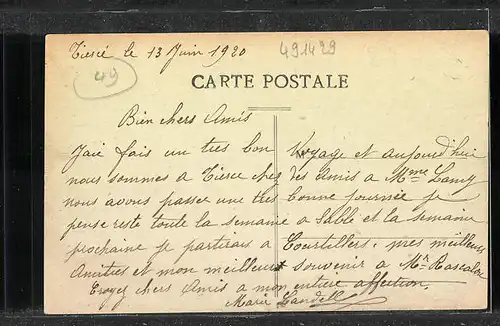 Tiercé le 13 Juin 1920
491429
49
CARTE POSTALE
Bien chers Amis
Jaie fais un tres bon Voyage et aujourd'hui
nous sommes a Tierce chez des Amis a Mme Lamy
nous avons passer une tres bonne journée je
pense reste toute la semaine a Sablé et la semaine
prochaine je partirais a Courtillers. mes meilleurs
Amitiés et mon meilleurs souvenir a Mr Rascalou
Croyez chers Amis a mon entiere affection,
Marie Landell